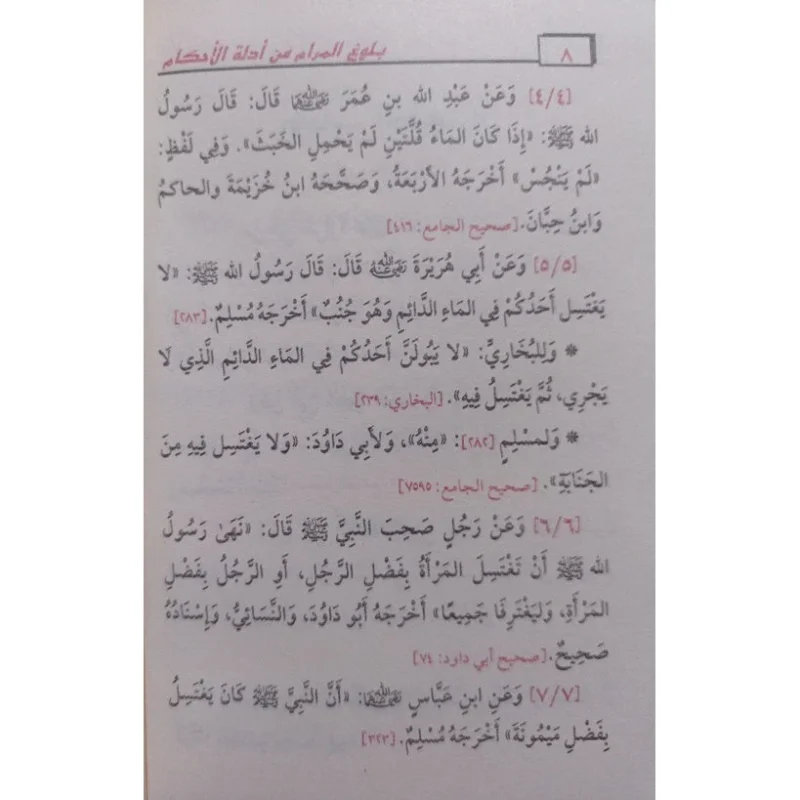 ٨
بلوغ المرام من أدلة الأحكام
[٤/٤] وَعَنْ عَبْدِ الله بنِ عُمَرَ رضي الله عنهما قَالَ: قَالَ رَسُولُ
الله ﷺ: «إِذَا كَانَ المَاءُ قُلَّتَيْنِ لَمْ يَحْمِلِ الخَبَثَ». وَفِي لَفْظٍ:
«لَمْ يَنْجُسْ» أَخْرَجَهُ الأَرْبَعَةُ، وَصَحَّحَهُ ابنُ خُزَيْمَةَ والحاكمُ
وَابنُ حِبَّانَ. [صحيح الجامع: ٤١٦]
[٥/٥] وَعَنْ أَبِي هُرَيْرَةَ رضي الله عنه قَالَ: قَالَ رَسُولُ الله ﷺ: «لا
يَغْتَسِل أَحَدُكُمْ فِي المَاءِ الدَّائِمِ وَهُوَ جُنُبٌ» أَخْرَجَهُ مُسْلِمٌ. [٢٨٣]
* وَلِلبُخَارِيِّ: «لا يَبُولَنَّ أَحَدُكُمْ فِي المَاءِ الدَّائِمِ الَّذِي لَا
يَجْرِي، ثُمَّ يَغْتَسِلُ فِيهِ». [البخاري: ٢٣٩]
* وَلمسْلِمٍ [٢٨٢]: «مِنْهُ»، وَلأَبِي دَاوُدَ: «وَلا يَغْتَسِل فِيهِ مِنَ
الجَنَابَةِ». [صحيح الجامع: ٧٥٩٥]
[٦/٦] وَعَنْ رَجُلٍ صَحِبَ النَّبِيَّ ﷺ قَالَ: «نَهَىٰ رَسُولُ
الله ﷺ أَنْ تَغْتَسِلَ المَرْأَةُ بِفَضْلِ الرَّجُلِ، أَوِ الرَّجُلُ بِفَضْلِ
المَرْأَةِ، وَليَغْتَرِفَا جَمِيعًا» أَخْرَجَهُ أَبُو دَاوُدَ، وَالنَّسَائِيُّ، وَإِسْنَادُهُ
صَحِيحٌ. [صحيح أبي داود: ٧٤]
[٧/٧] وَعَنِ ابنِ عَبَّاسٍ رضي الله عنهما: «أَنَّ النَّبِيَّ ﷺ كَانَ يَغْتَسِلُ
بِفَضْلِ مَيْمُونَةَ» أَخْرَجَهُ مُسْلِمٌ. [٣٢٣]